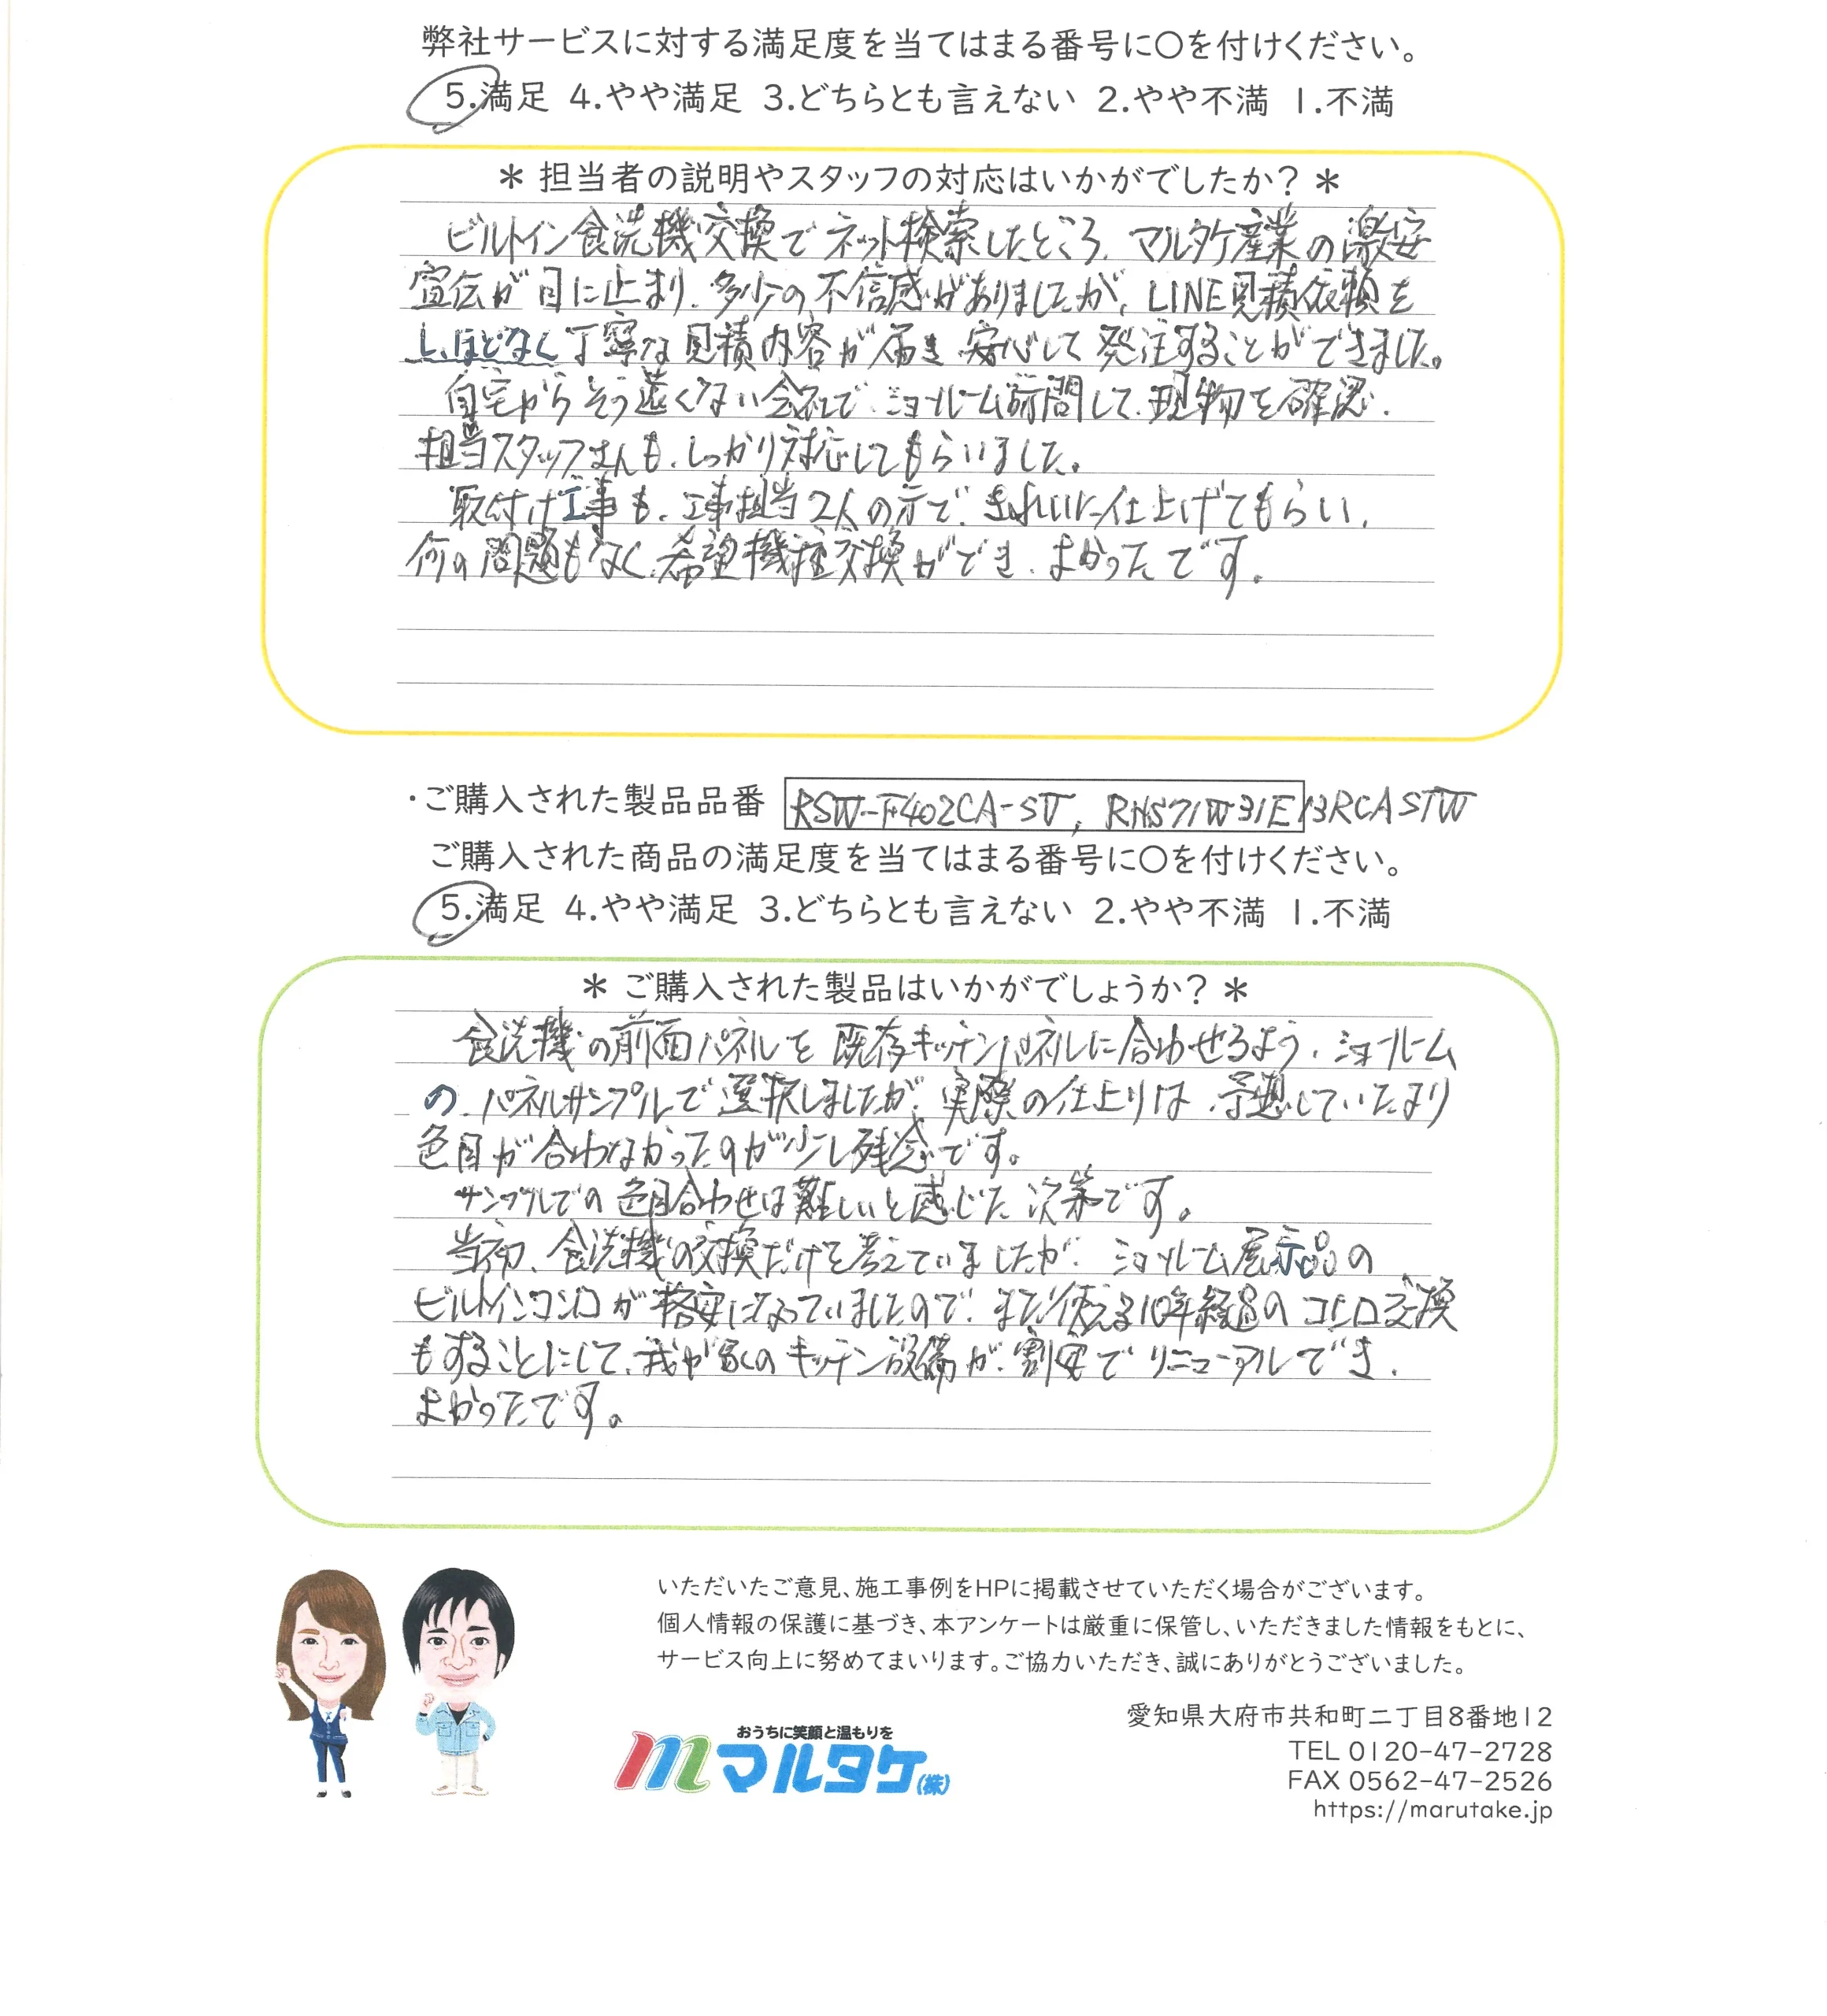 弊社サービスに対する満足度を当てはまる番号に〇を付けください。
5.満足 4.やや満足 3.どちらとも言えない 2.やや不満 1.不満
＊ 担当者の説明やスタッフの対応はいかがでしたか？ ＊
ビルトイン食洗機交換でネット検索したところ、マルタケ産業の激安
宣伝が目に止まり、多少の不信感がありましたが、LINE見積依頼を
し、ほどなく丁寧な見積内容が届き、安心して発注することができました。
自宅からそう遠くない会社で、ショールーム訪問して、現物を確認、
担当スタッフさんも、しっかり対応してもらいました。
取付け工事も、工事担当2人の方で、きれいに仕上げてもらい、
何の問題もなく、希望機種交換ができ、よかったです。
・ご購入された製品品番 RSW-F402CA-SV, RHS71W31E13RCASTW
ご購入された商品の満足度を当てはまる番号に〇を付けください。
5.満足 4.やや満足 3.どちらとも言えない 2.やや不満 1.不満
＊ ご購入された製品はいかがでしょうか？ ＊
食洗機の前面パネルを既存キッチンパネルに合わせるよう、ショールーム
の、パネルサンプルで選択しましたが、実際の仕上りは、予想していたより
色目が合わなかったのが少し残念です。
サンプルでの色目合わせは難しいと感じた次第です。
当初、食洗機の交換だけを考えていましたが、ショールーム展示品の
ビルトインコンロが格安になっていましたので、まだ使える10年経過のコンロ交換
もすることにして、我が家のキッチン設備が、割安でリニューアルでき、
よかったです。
いただいたご意見、施工事例をHPに掲載させていただく場合がございます。
個人情報の保護に基づき、本アンケートは厳重に保管し、いただきました情報をもとに、
サービス向上に努めてまいります。ご協力いただき、誠にありがとうございました。
おうちに笑顔と温もりを
m マルタケ(株)
愛知県大府市共和町二丁目8番地12
TEL 0120-47-2728
FAX 0562-47-2526
https://marutake.jp